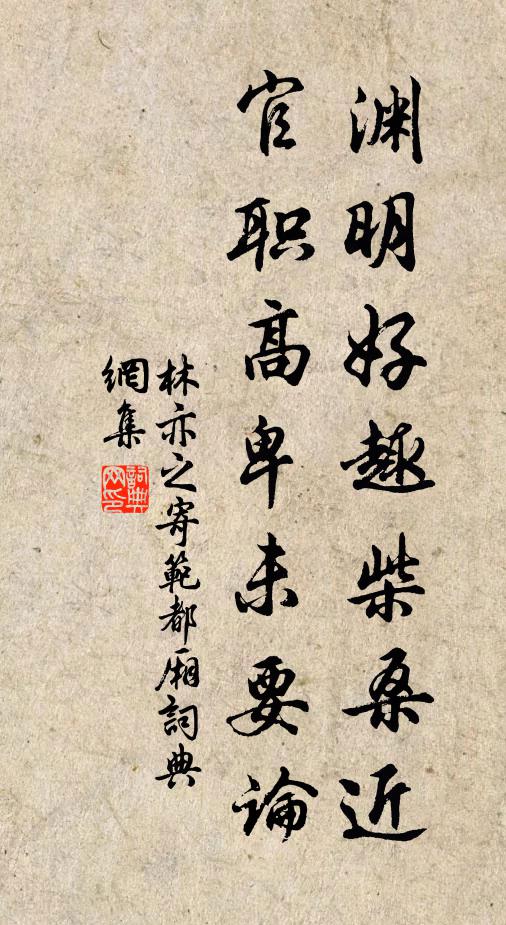 渊明好趣柴桑近
官职高卑未要論
林亦之寄範都廂詞典
網集
詞典
网印